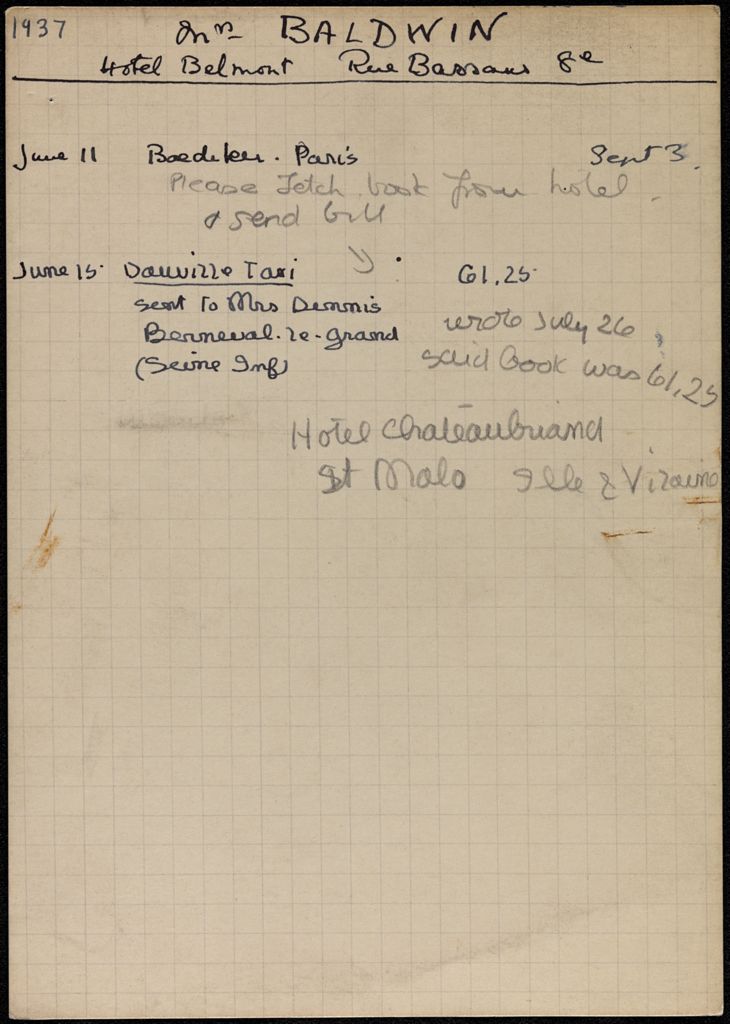 1937
Mrs BALDWIN
Hotel Belmont Rue Bassano 8e
June 11 Baedeker. Paris Sept 3.
Please fetch book from hotel.
& send bill
June 15 Dauville Taxi 61,25
sent to Mrs Dennis
Berneval-le-Grand wrote July 26,
(Seine Inf) said book was 61,25
Hotel Chateaubriand
St Malo Ille & Vilaine